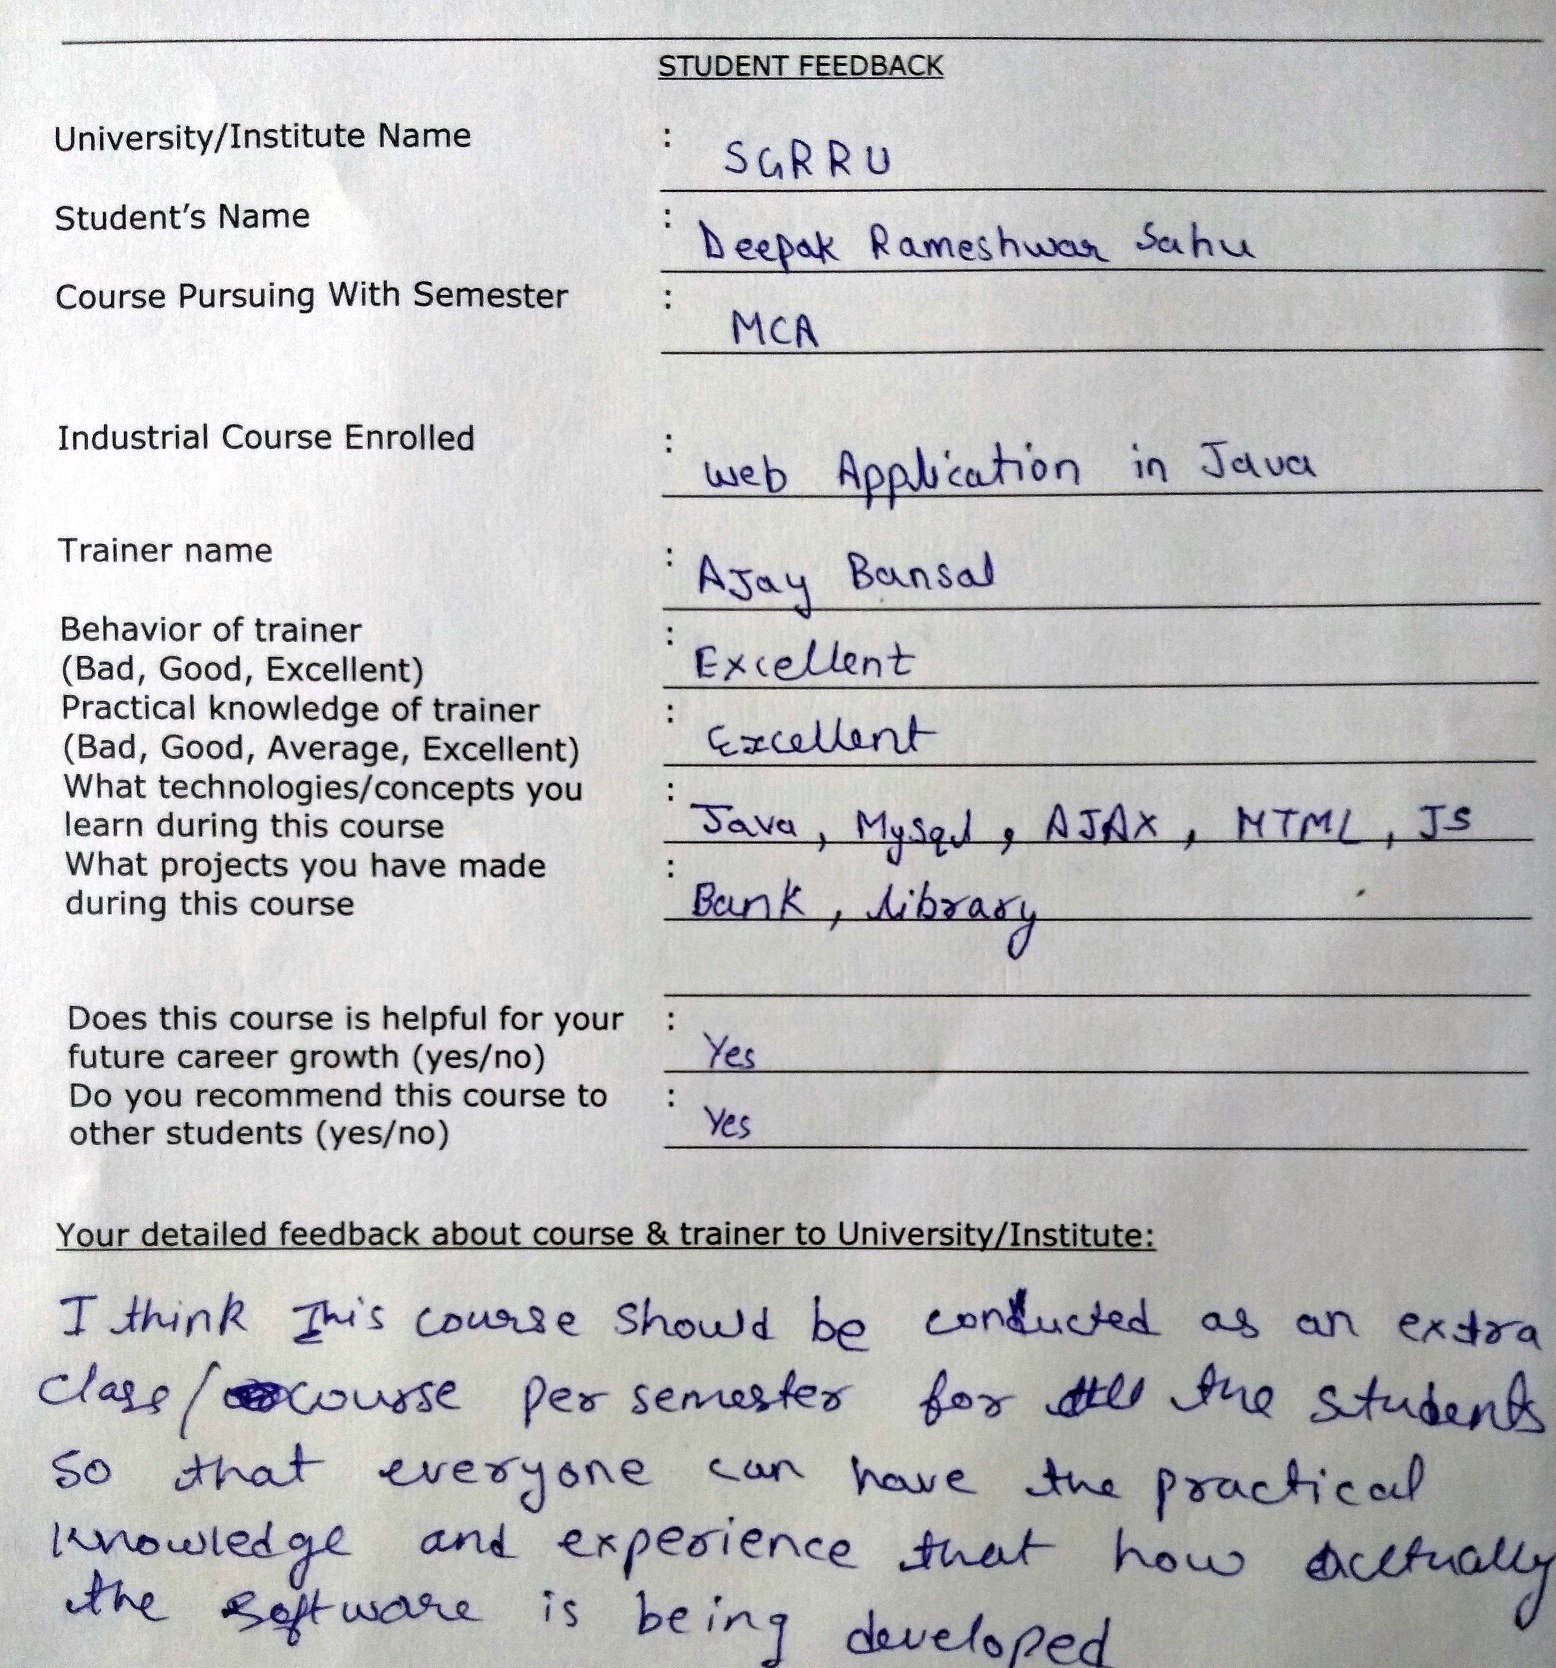 STUDENT FEEDBACK
University/Institute Name : SGRRU
Student's Name : Deepak Rameshwar Sahu
Course Pursuing With Semester : MCA
Industrial Course Enrolled : Web Application in Java
Trainer name : AJay Bansal
Behavior of trainer
(Bad, Good, Excellent) : Excellent
Practical knowledge of trainer
(Bad, Good, Average, Excellent) : Excellent
What technologies/concepts you
learn during this course : Java, Mysql, AJAX, HTML, JS
What projects you have made
during this course : Bank, library
Does this course is helpful for your
future career growth (yes/no) : Yes
Do you recommend this course to
other students (yes/no) : Yes
Your detailed feedback about course & trainer to University/Institute:
I think This course should be conducted as an extra
class/course per semester for all the students
so that everyone can have the practical
knowledge and experience that how acltually
the software is being developed